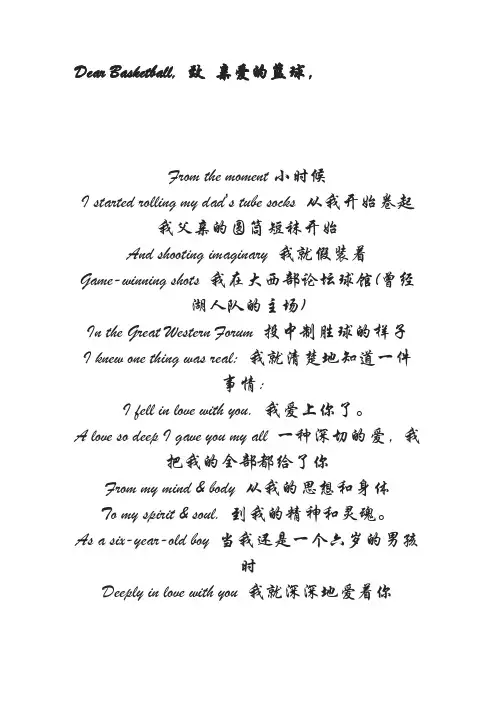 Dear Basketball, 致 亲爱的篮球，
From the moment 小时候
I started rolling my dad's tube socks 从我开始卷起
我父亲的圆筒短袜开始
And shooting imaginary 我就假装着
Game-winning shots 我在大西部论坛球馆(曾经
湖人队的主场)
In the Great Western Forum 投中制胜球的样子
I knew one thing was real: 我就清楚地知道一件
事情:
I fell in love with you. 我爱上你了。
A love so deep I gave you my all 一种深切的爱，我
把我的全部都给了你
From my mind & body 从我的思想和身体
To my spirit & soul. 到我的精神和灵魂。
As a six-year-old boy 当我还是一个六岁的男孩
时
Deeply in love with you 我就深深地爱着你